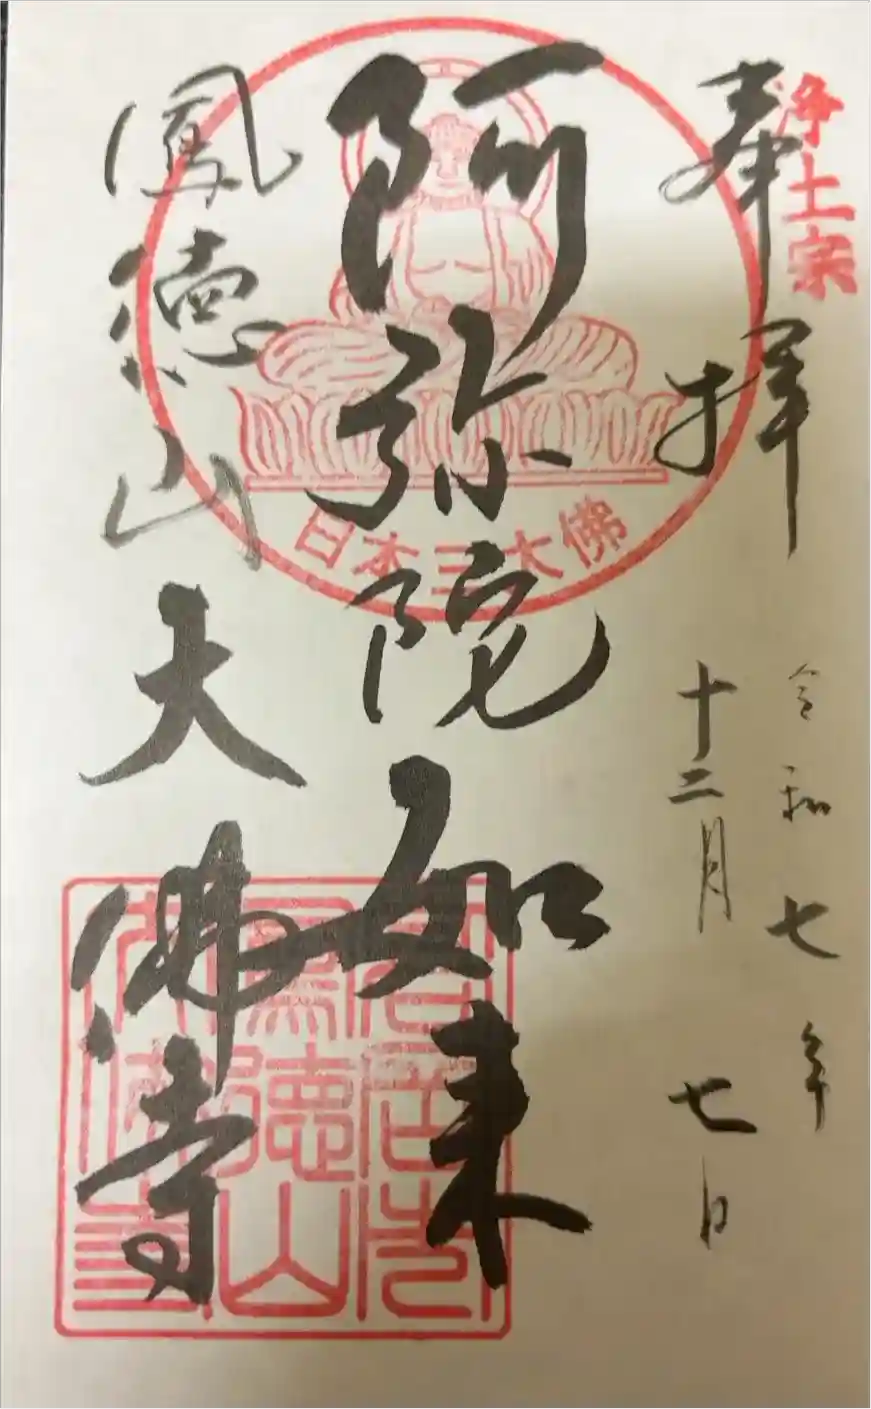 浄土宗
奉拝
令和七年
十二月七日
阿弥陀如来
日本三大佛
鳳徳山大佛寺
高岡市
鳳徳山
大佛寺